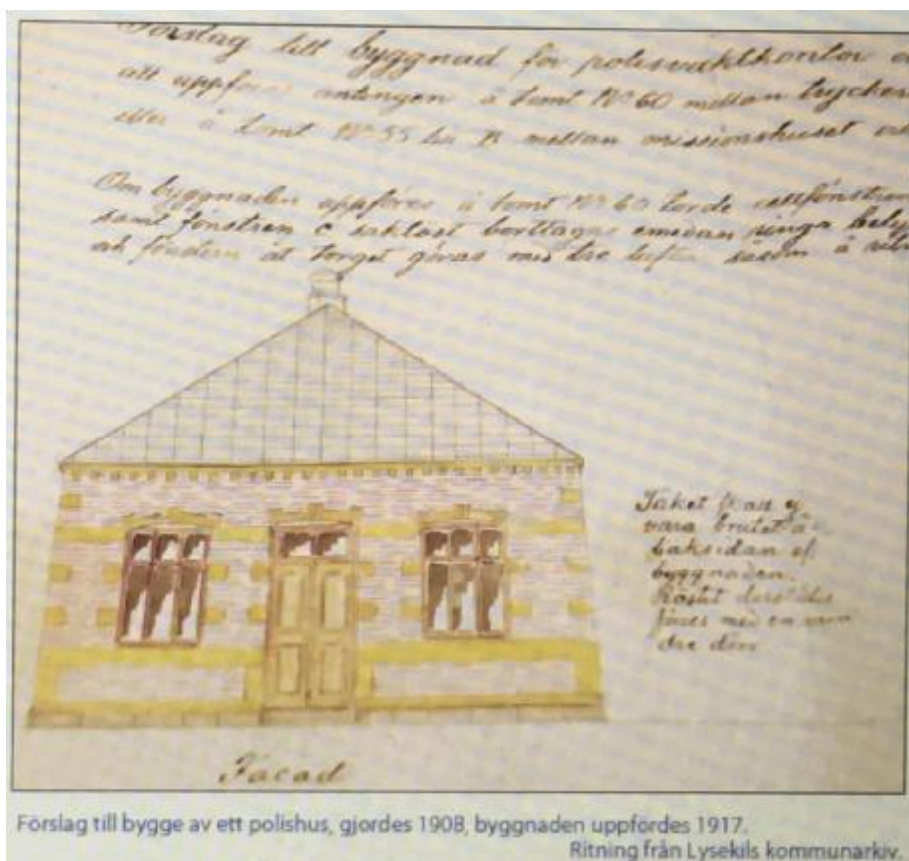 Förslag till byggnad för polisvaktkontor
att uppföras antingen å tomt No 60 mellan
eller å tomt No 55 B mellan missionshuset
Om byggnaden uppföres å tomt No 60 torde cellfönstren
samt fönstren c saklöst borttagas emedan
fönstern åt torget göras med tre lufter såsom å
Taket
vara brutet å
baksidan af
byggnaden.
Röstet
med en
Facad
Förslag till bygge av ett polishus, gjordes 1908, byggnaden uppfördes 1917.
Ritning från Lysekils kommunarkiv.